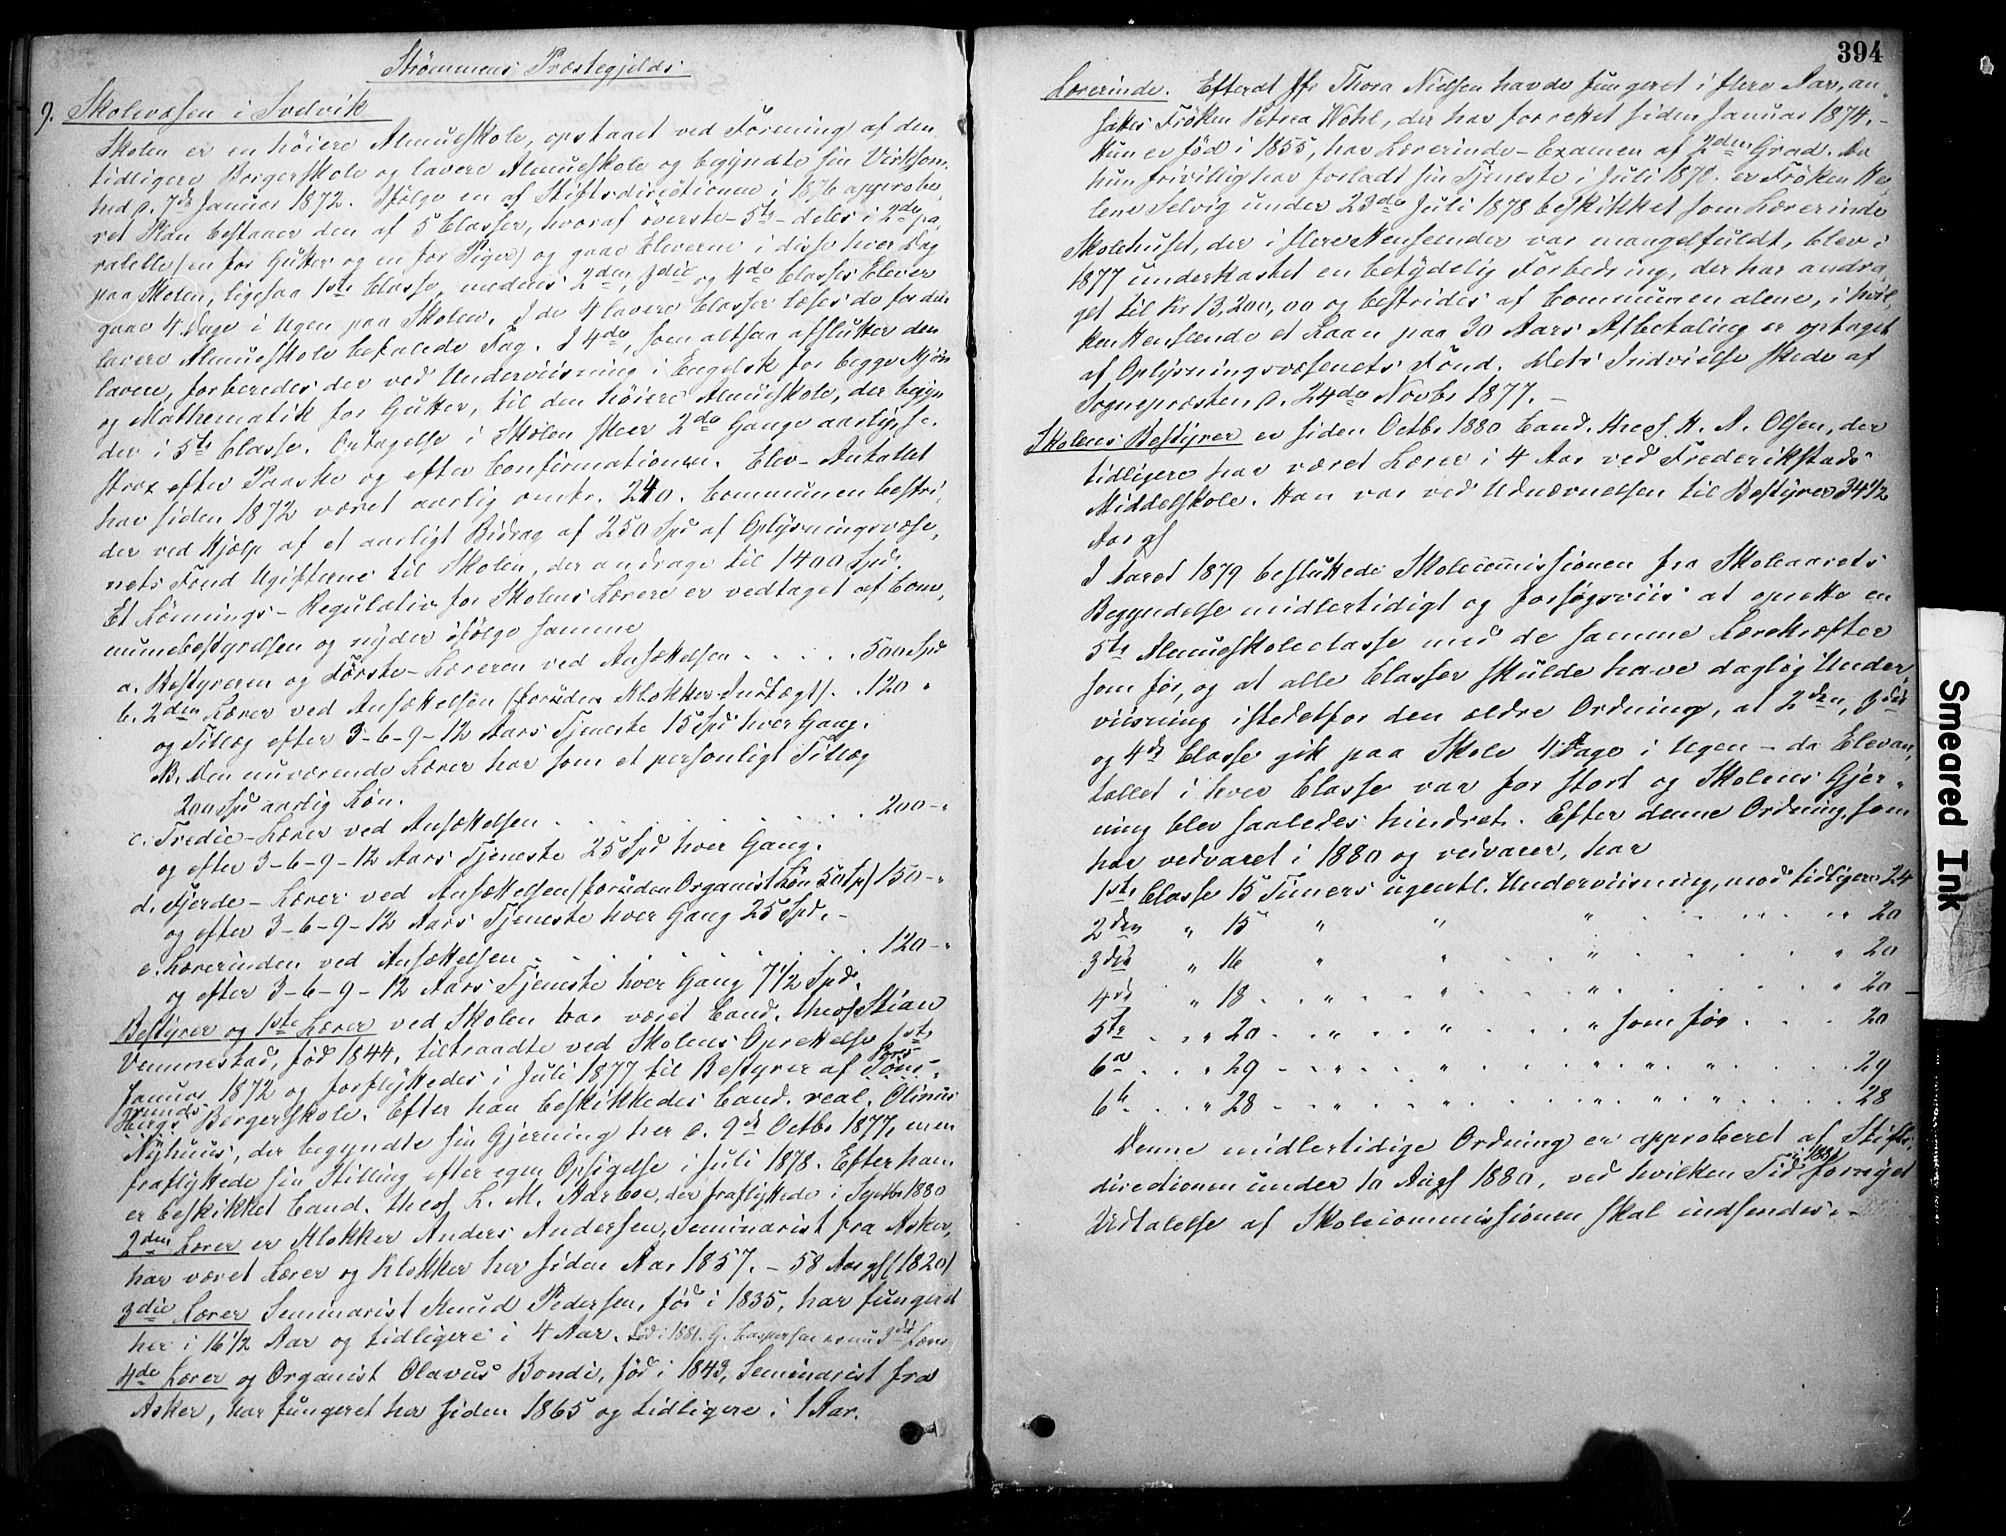 Strømmens Præstegjelds
9. Skolevæsen i Svelvik
Skolen er en høiere Almueskole, opstaaet ved Forening af den
tidligere Borgerskole og lavere Almueskole og begyndte sin Virksom-
hed d. 7de Januar 1872. Ifølge en af Stiftsdirectionen i 1876 approbe-
ret Plan bestaaer den af 5 Classer, hvoraf øverste - 5te - deles i 2de pa-
ralelle (en for Gutter og en for Piger) og gaae Eleverne i disse hver Dag
paa Skolen, ligesaa 1ste Classe, medens 2den, 3die og 4de Classes Elever
gaae 4 Dage i Ugen paa Skolen. I de 4 lavere Classer læses de for den
lavere Almueskole befalede Fag. I 4de, som altsaa afslutter den
lavere, forberedes der ved Underviisning i Engelsk for begge Kjøn
og Mathematik for Gutter, til den høiere Almueskole, der begyn-
der i 5te Classe. Optagelse i Skolen skeer 2de Gange aarlig, sc.
strax efter Paaske og efter Confirmationen. Elev-Antallet
har siden 1872 været aarlig omtr. 240. Communen bestri-
der ved Hjælp af et aarligt Bidrag af 250 Spd af Oplysningsvæse-
nets Fond Ugifterne til Skolen, der andrage til 1400 Spd.
Et Lønnings-Regulativ for Skolens Lærere er vedtaget af Com-
munebestyrelsen og nyder ifølge samme
a. Bestyreren og Første-Læreren ved Ansættelsen . . . . . 500 Spd
b. 2den Lærer ved Ansættelsen (foruden Klokker-Indtægt). . 120 "
og Tillæg efter 3-6-9-12 Aars Tjeneste 15 Spd hver Gang.
NB. Den nuværende Lærer har som et personligt Tillæg
200 Spd aarlig Løn.
c. Tredie-Lærer ved Ansættelsen . . . . . . . . . 200 - "
og efter 3-6-9-12 Aars Tjeneste 25 Spd hver Gang.
d. Fjerde-Lærer ved Ansættelsen (foruden Organist Løn 50 Sp) 150 - "
og efter 3-6-9-12 Aars Tjeneste hver Gang 25 Spd. -
e. Lærerinden ved Ansættelsen . . . . . . . . . . 120 - "
og efter 3-6-9-12 Aars Tjeneste hver Gang 7 1/2 Spd.
Bestyrer og 1ste Lærer ved Skolen har været Cand. theol Stian
Vemmestad, født 1844, tiltraadte ved Skolens Oprettelse 1ste
Januar 1872 og forflyttedes i Juli 1877 til Bestyrer af Tøns- Pors-
bergs grunds Borgerskole. Efter han beskikkedes Cand. real. Olinus
Nyhuus, der begyndte sin Gjerning her d. 9de Octbr 1877, men
fraflyttede sin Stilling efter egen Opsigelse i Juli 1878. Efter ham
er beskikket Cand. theol L. M. Aarboe, der fraflyttede i Septbr 1880
2den Lærer er Klokker Anders Andersen, Seminarist fra Asker,
har været Lærer og Klokker her siden Aar 1857. - 58 Aar gl (1820)
3die Lærer Seminarist Knud Pedersen, født i 1835, har fungeret
her i 16 1/2 Aar og tidligere i 4 Aar. Død i 1881. G. Caspersen er nu 3die Lærer
4de Lærer og Organist Olavus Bondi, født i 1843, Seminarist fra
Asker, har fungeret her siden 1865 og tidligere i 1 Aar.
394
Lærerinde. Efterat Jfr Thora Nielsen havde fungeret i flere Aar, an-
sattes Frøken Petrea Wohl, der har forrettet siden Januar 1874. -
Hun er født i 1855, har Lærerinde-Examen af 2den Grad. Da
hun frivillig har forladt sin Tjeneste i Juli 1878 er Frøken He-
lene Selvig under 23de Juli 1878 beskikket som Lærerinde
Skolehuset, der i flere Henseender var mangelfuldt, blev i
1877 underkastet en betydelig Forbedring, der har andra-
get til Kr 13,200,00 og bestrides af Communen alene, i hvil-
ken Henseende et Laan paa 30 Aars Afbetaling er optaget
af Oplysningsvæsenets Fond. Dets Indvielse skede af
Sognepræsten d. 24de Novbr 1877. -
Skolens Bestyrer er siden Octbr 1880 Cand. theol. H. A. Olsen, der
tidligere har været Lærer i 4 Aar ved Frederikstads
Middelskole. Han var ved Udnævnelsen til Bestyrer 34 1/2
Aar gl
I Aaret 1879 besluttede Skolecommissionen fra Skoleaarets
Begyndelse midlertidigt og forsøgsviis at oprette en
5te Almueskoleclasse med de samme Lærekræfter
som før, og at alle Classer skulde have daglig Under-
viisning istedetfor den ældre Ordning, at 2den, 3die
og 4de Classe gik paa Skole 4 Dage i Ugen - da Elevan-
tallet i hver Classe var for stort og Skolens Gjer-
ning blev saaledes hindret. Efter denne Ordning, som
har vedvaret i 1880 og vedvarer, har
1ste Classe 15 Timers ugentl. Underviisning, mod tidligere 24
2den " 15 " " " . . . . " 20
3die " 16 " " " . . . . " 20
4de " 18 . . " . . " . . . " . . . " 20
5te . . " 20 . . " . . " . . . " som før . . . 20
6a . . " 29 . . " . . " . . " . . " . . . 29
6b . . " 28 . . " . . " . . " . . " . . . 28
Denne midlertidige Ordning er approberet af Stifts-
directionen under 10 Augs 1880, ved hvilken Tid i 1881 fornyet
Udtalelse af Skolecommissionen skal indsendes. -
Smeared Ink